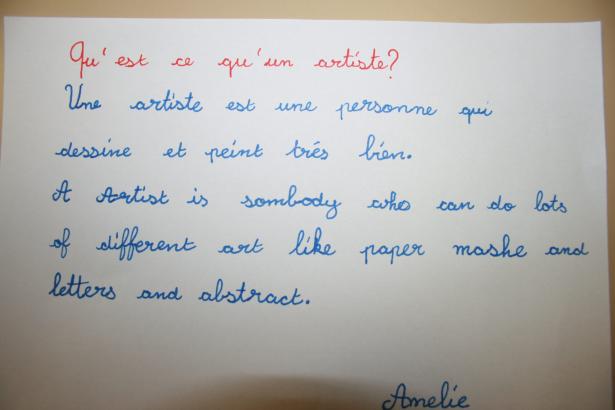 Qu'est ce qu'un artiste?
Une artiste est une personne qui
dessine et peint trés bien.
A Artist is sombody who can do lots
of different art like paper mashe and
letters and abstract.
Amelie